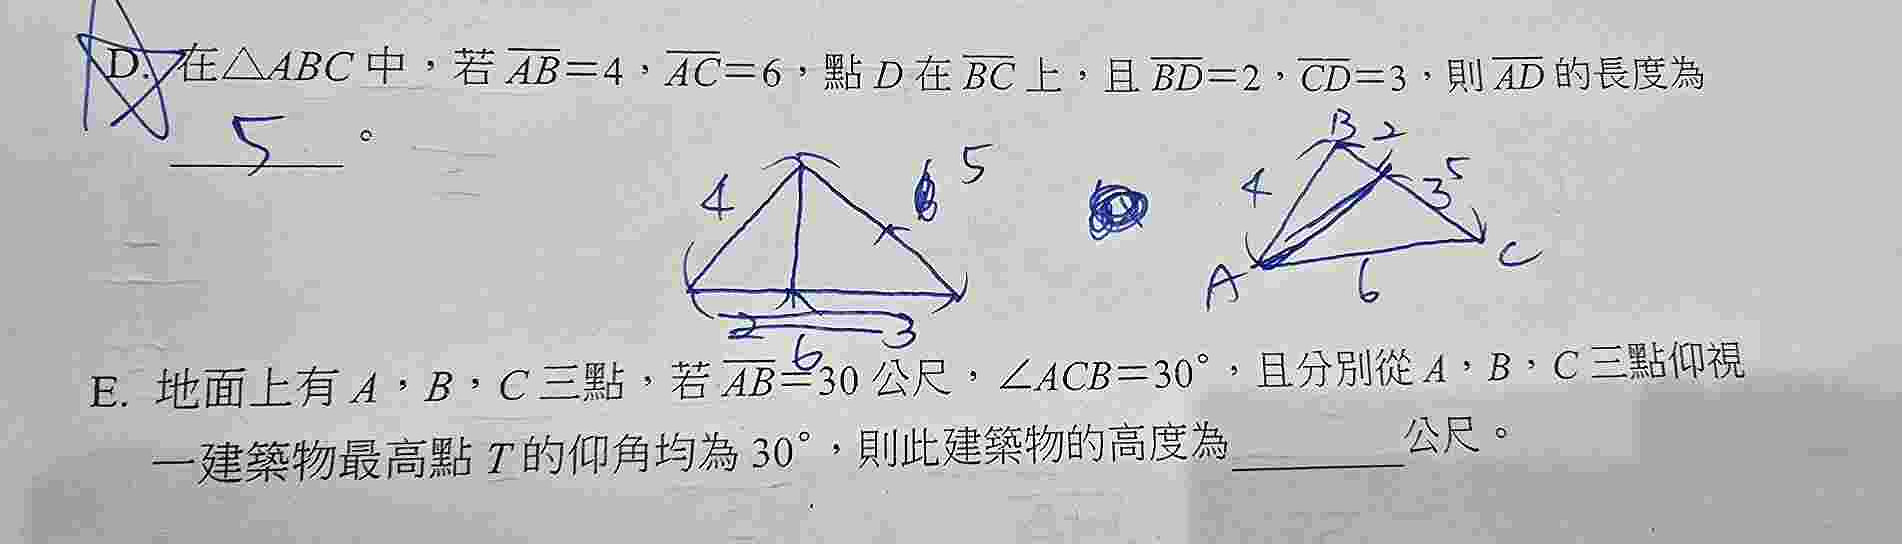 D. 在△ABC 中，若 AB=4，AC=6，點 D 在 BC 上，且 BD=2，CD=3，則 AD 的長度為
5 。
B 2
4 5 4 3 5
A 6 C
2 3
6
E. 地面上有 A，B，C 三點，若 AB=30 公尺，∠ACB=30°，且分別從 A，B，C 三點仰視
一建築物最高點 T 的仰角均為 30°，則此建築物的高度為 公尺。